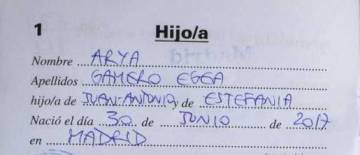 1 Hijo/a
Nombre ARYA
Apellidos GAMERO EGEA
hijo/a de JUAN-ANTONIO y de ESTEFANIA
Nació el día 30 de JUNIO de 2017
en MADRID